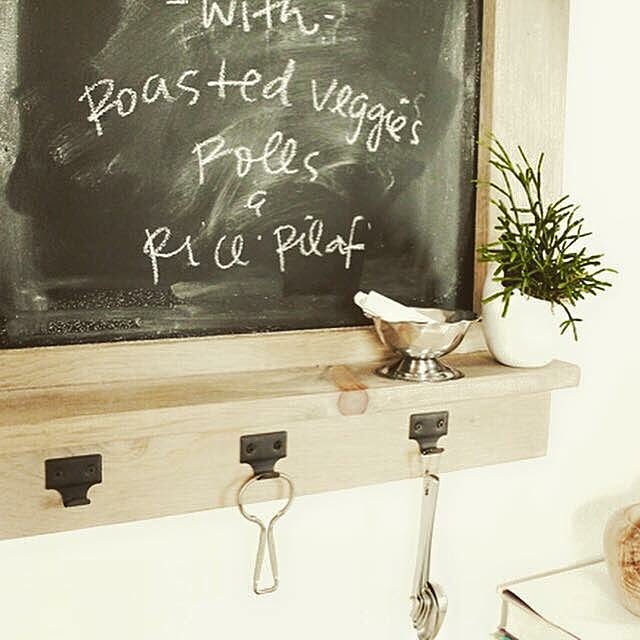 - With -
Roasted Veggie's
Rolls
&
Rice Pilaf